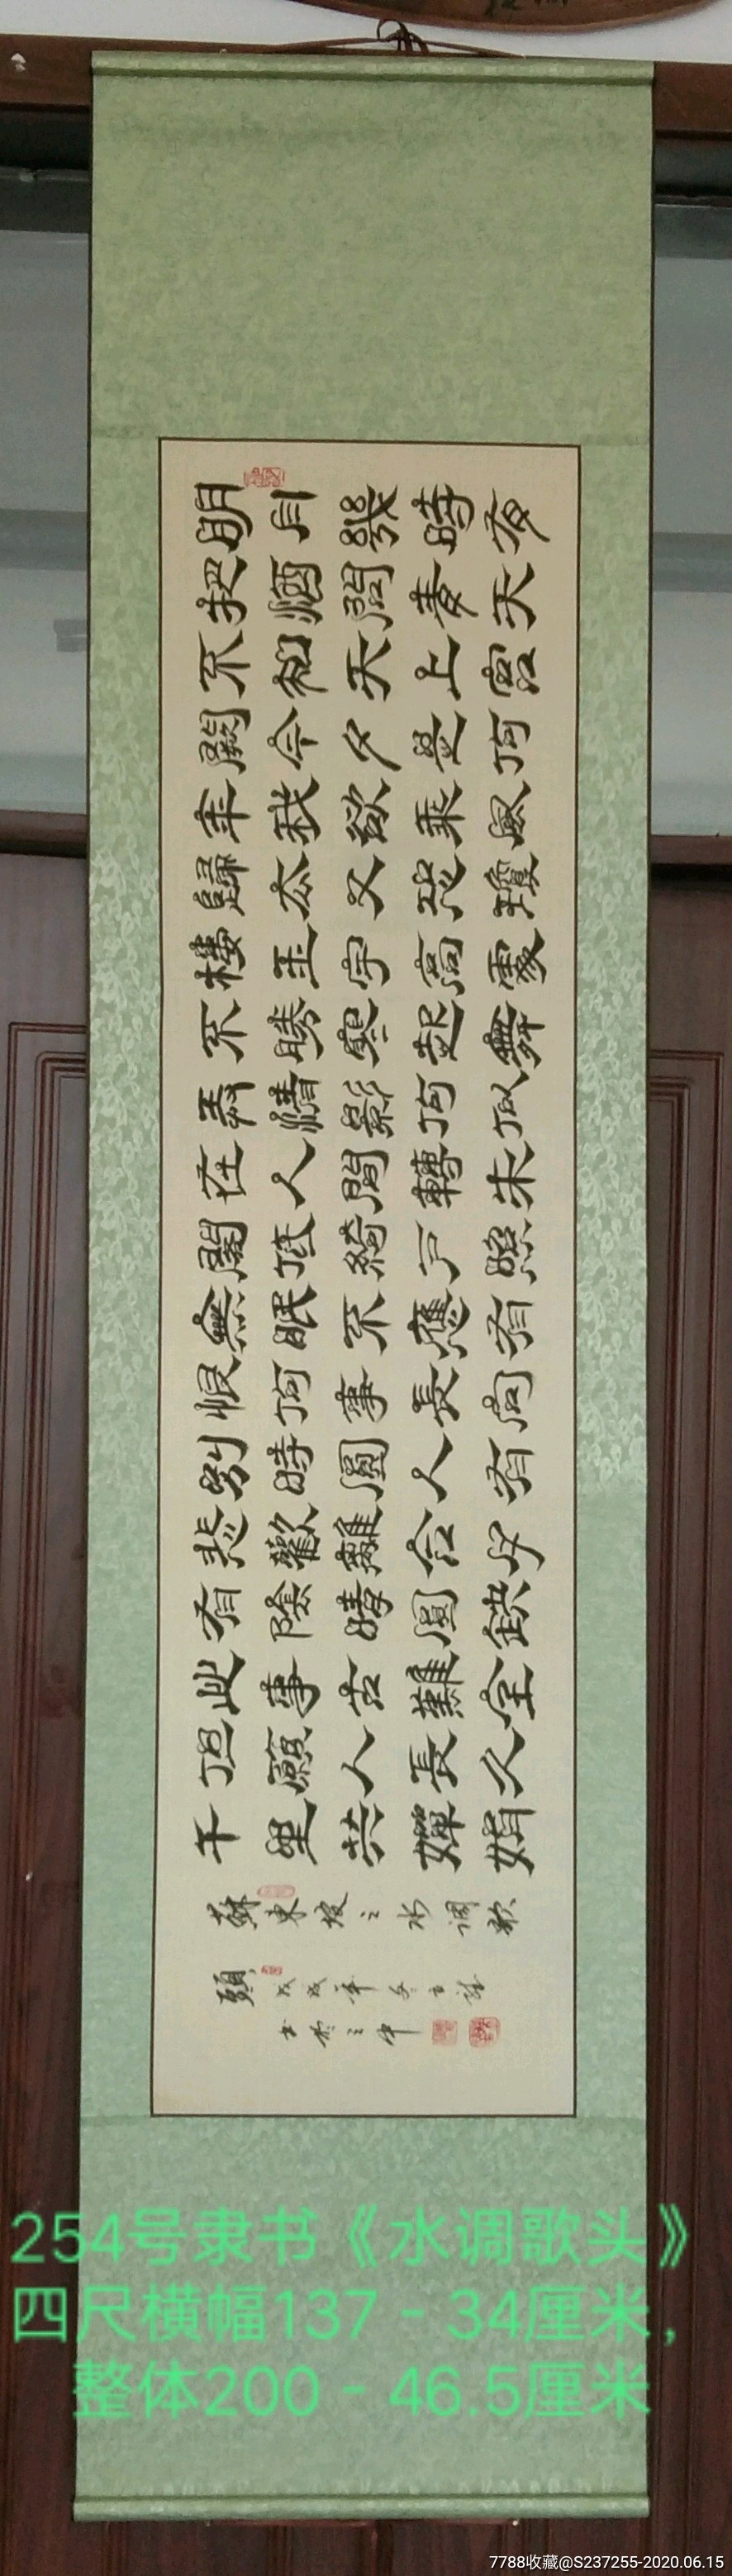 明月幾時有
把酒問青天
不知天上宫
闕今夕是何
年我欲乘風
歸去又恐瓊
樓玉宇高處
不勝寒起舞
弄清影何似
在人間轉朱
閣低綺户照
無眠不應有
恨何事長向
别時圓人有
悲歡離合月
有陰晴圓缺
此事古難全
但願人長久
千里共嬋娟
蘇東坡之水调歌
頭 戊戌年冬
254号隶书《水调歌头》
四尺横幅137－34厘米，
整体200－46.5厘米
7788收藏@S237255-2020.06.15